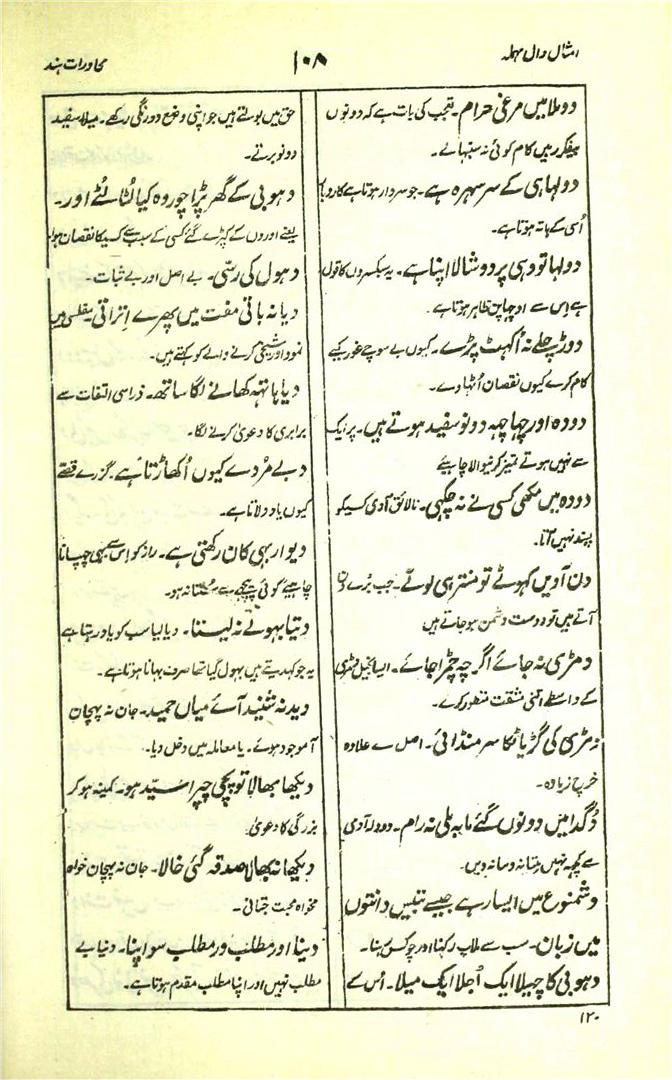 امثال دال مہملہ
۱۰۸
محاورات ہند
دو ملا میں مرغی حرام۔ تعجب کی بات ہے کہ دونوں
بیفکر رہیں کام کوئی نہ سنبھالے۔
دولہا ہی کے سر سہرہ ہے۔ جو سردار ہوتا ہے کاروبار
اُسی کے ہاتہ ہوتا ہے۔
دولہا تو وہی پر دوشالا اپنا ہے۔ یہ سبکسروں کا قول
ہے اِس سے اوچھاپن ظاہر ہوتا ہے۔
دوڑ چلے نہ اُکہٹ پڑے۔ کیوں بے سوچے غور کیے
کام کرے کیوں نقصان اُٹہا دے۔
دودہ اور چہاچہہ دونو سفید ہوتے ہیں۔ پر ایک
سے نہیں ہوتے تمیز کرنیوالا چاہیئے
دودہ میں مکھی کسی نے نہ چکہی۔ نالائق آدمی کسیکو
پسند نہیں آتا۔
دن آویں کہوٹے تو منتر ہی لوٹے۔ جب بُرے دن
آتے ہیں تو دوست دشمن ہو جاتے ہیں
دمڑی نہ جائے اگرچہ چمڑا جائے۔ ایسا بخیل دمڑی
کے واسطے اتنی مشقت منظور کرے۔
دمڑی کی گڑیا ٹکا سر منڈائی۔ اصل سے علاوہ
خرچ زیادہ۔
دُگدا میں دونوں گئے مایہ ملی نہ رام۔ دودلہ آدمی
سے کچہہ نہیں بنتا نہ دنیا نہ دیں۔
دشمنوع میں ایسا رہے جیسے بتیس دانتوں
میں زبان۔ سب سے ملاپ رکہنا اور چوکس رہنا۔
دہوبی کا چہیلا ایک اُجلا ایک میلا۔ اُس کے
حق میں بولتے ہیں جو اپنی وضع دورنگی رکھے۔ میلا سفید
دونو برتے۔
دہوبی کے گھر پڑا چور وہ کیا لُٹا لُٹے اور۔
یعنے اوروں کے کپڑے گئے کسی کے سبب سے کسیکا نقصان ہوا
دہول کی رسّی۔ بے اصل اور بے ثبات۔
دیا نہ باتی مفت میں پھرے اِتراتی۔ مفلسی میں
نمود اور شیخی کرنے والے کو کہتے ہیں۔
دیا ہاتہہ کھانے لگا ساتھ۔ ذراسی التفات سے
برابری کا دعویٰ کرنے لگا۔
دبے مُردے کیوں اُکھاڑتا ہے۔ گزرے قصے
کیوں یاد دلاتا ہے۔
دیوار بہی کان رکھتی ہے۔ راز کو اِس سے بہی چہپانا
چاہیئے کوئی پیچہے سے سُنتا نہ ہو۔
دیتا بہولے نہ لیتا۔ دیا لیا سب کو یاد رہتا ہے
یہ جو کہدیتے ہیں بہول گیا تھا صرف بہانا ہوتا ہے۔
دید نہ شنید آئے میاں حمید۔ جان نہ پہچان
آ موجود ہوئے۔ یا معاملہ میں دخل دیا۔
دیکھا بھالا تو پچی چیرا سیّد ہو۔ کمینہ ہو کر
بزرگی کا دعویٰ
دیکھا نہ بھالا صدقہ گئی خالا۔ جان نہ پہچان خواہ
مخواہ محبت جتائی۔
دینا اور مطلب ور مطلب سو اپنا۔ دنیا بے
مطلب نہیں اور اپنا مطلب مقدم ہوتا ہے۔
۱۲۰